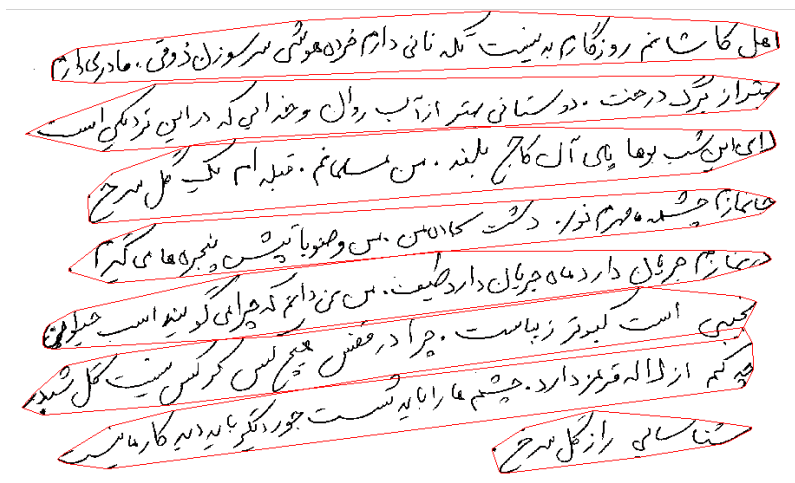 اهل کاشانم روزگارم بد نیست تکه نانی دارم خرده هوشی سر سوزن ذوقی. مادری دارم
بهتر از برگ درخت. دوستانی بهتر از آب روان و خدایی که در این نزدیکی است
لای این شب بوها پای آن کاج بلند. من مسلمانم. قبله ام یک گل سرخ
جانمازم چشمه مهرم نور. دشت سجاده من. من وضو با تپش پنجره ها می گیرم
در نمازم جریان دارد ماه جریان دارد طیف. من نمی دانم که چرا می گویند اسب حیوان
نجیبی است کبوتر زیباست. چرا در قفس هیچ کسی کرکس نیست گل شبدر
چه کم از لاله قرمز دارد. چشم ها را باید شست جور دیگر باید دید کار ما نیست
شناسایی راز گل سرخ